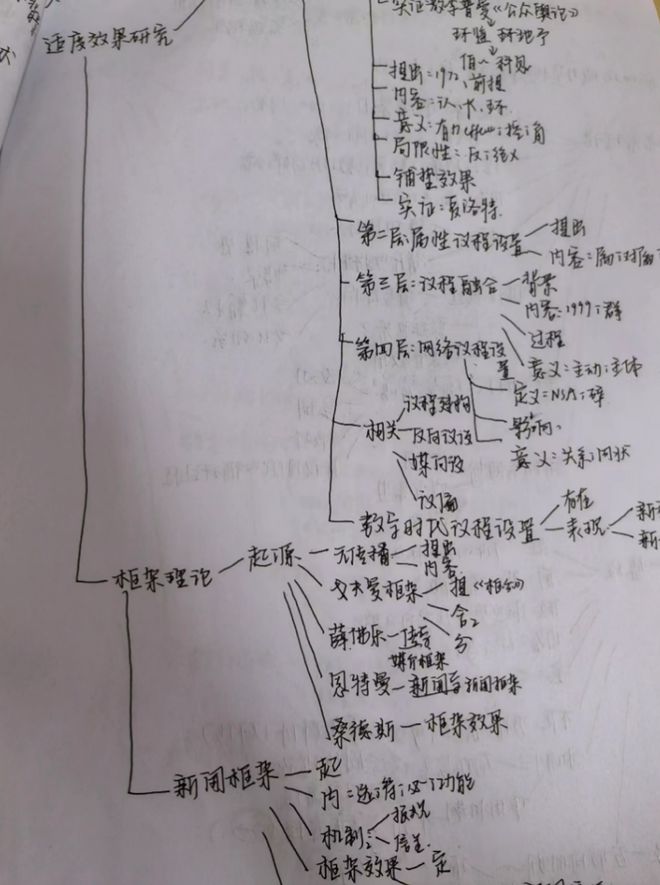 适度效果研究
实证数学普爱《公众舆论》
环监 环地予
提出:1972、前提
内容:认、长、环.
意义:有力;控;角
局限性:反;络乂
铺垫效果
实证:夏洛特.
第二层:属性议程设置
提出
内容:属;对属
第三层:议程融合
背景
内容:1999;群
过程
意义:主动;主体
第四层:网络议程设置
定义:NSA;碎
影响
意义:关系;网状
相关
议程建构
反向议设
媒间设
议属
数字时代议程设置
存在
表现
新
新
框架理论
起源
元传播
提出
内容
戈夫曼框架
提《框分》
合2
分
薛佛乐
传亨
媒介框架
恩特曼—新闻与新闻框架
桑德斯—框架效果
新闻框架
起
内:选择;凸;功能
机制:
报观
信差
框架效果—定